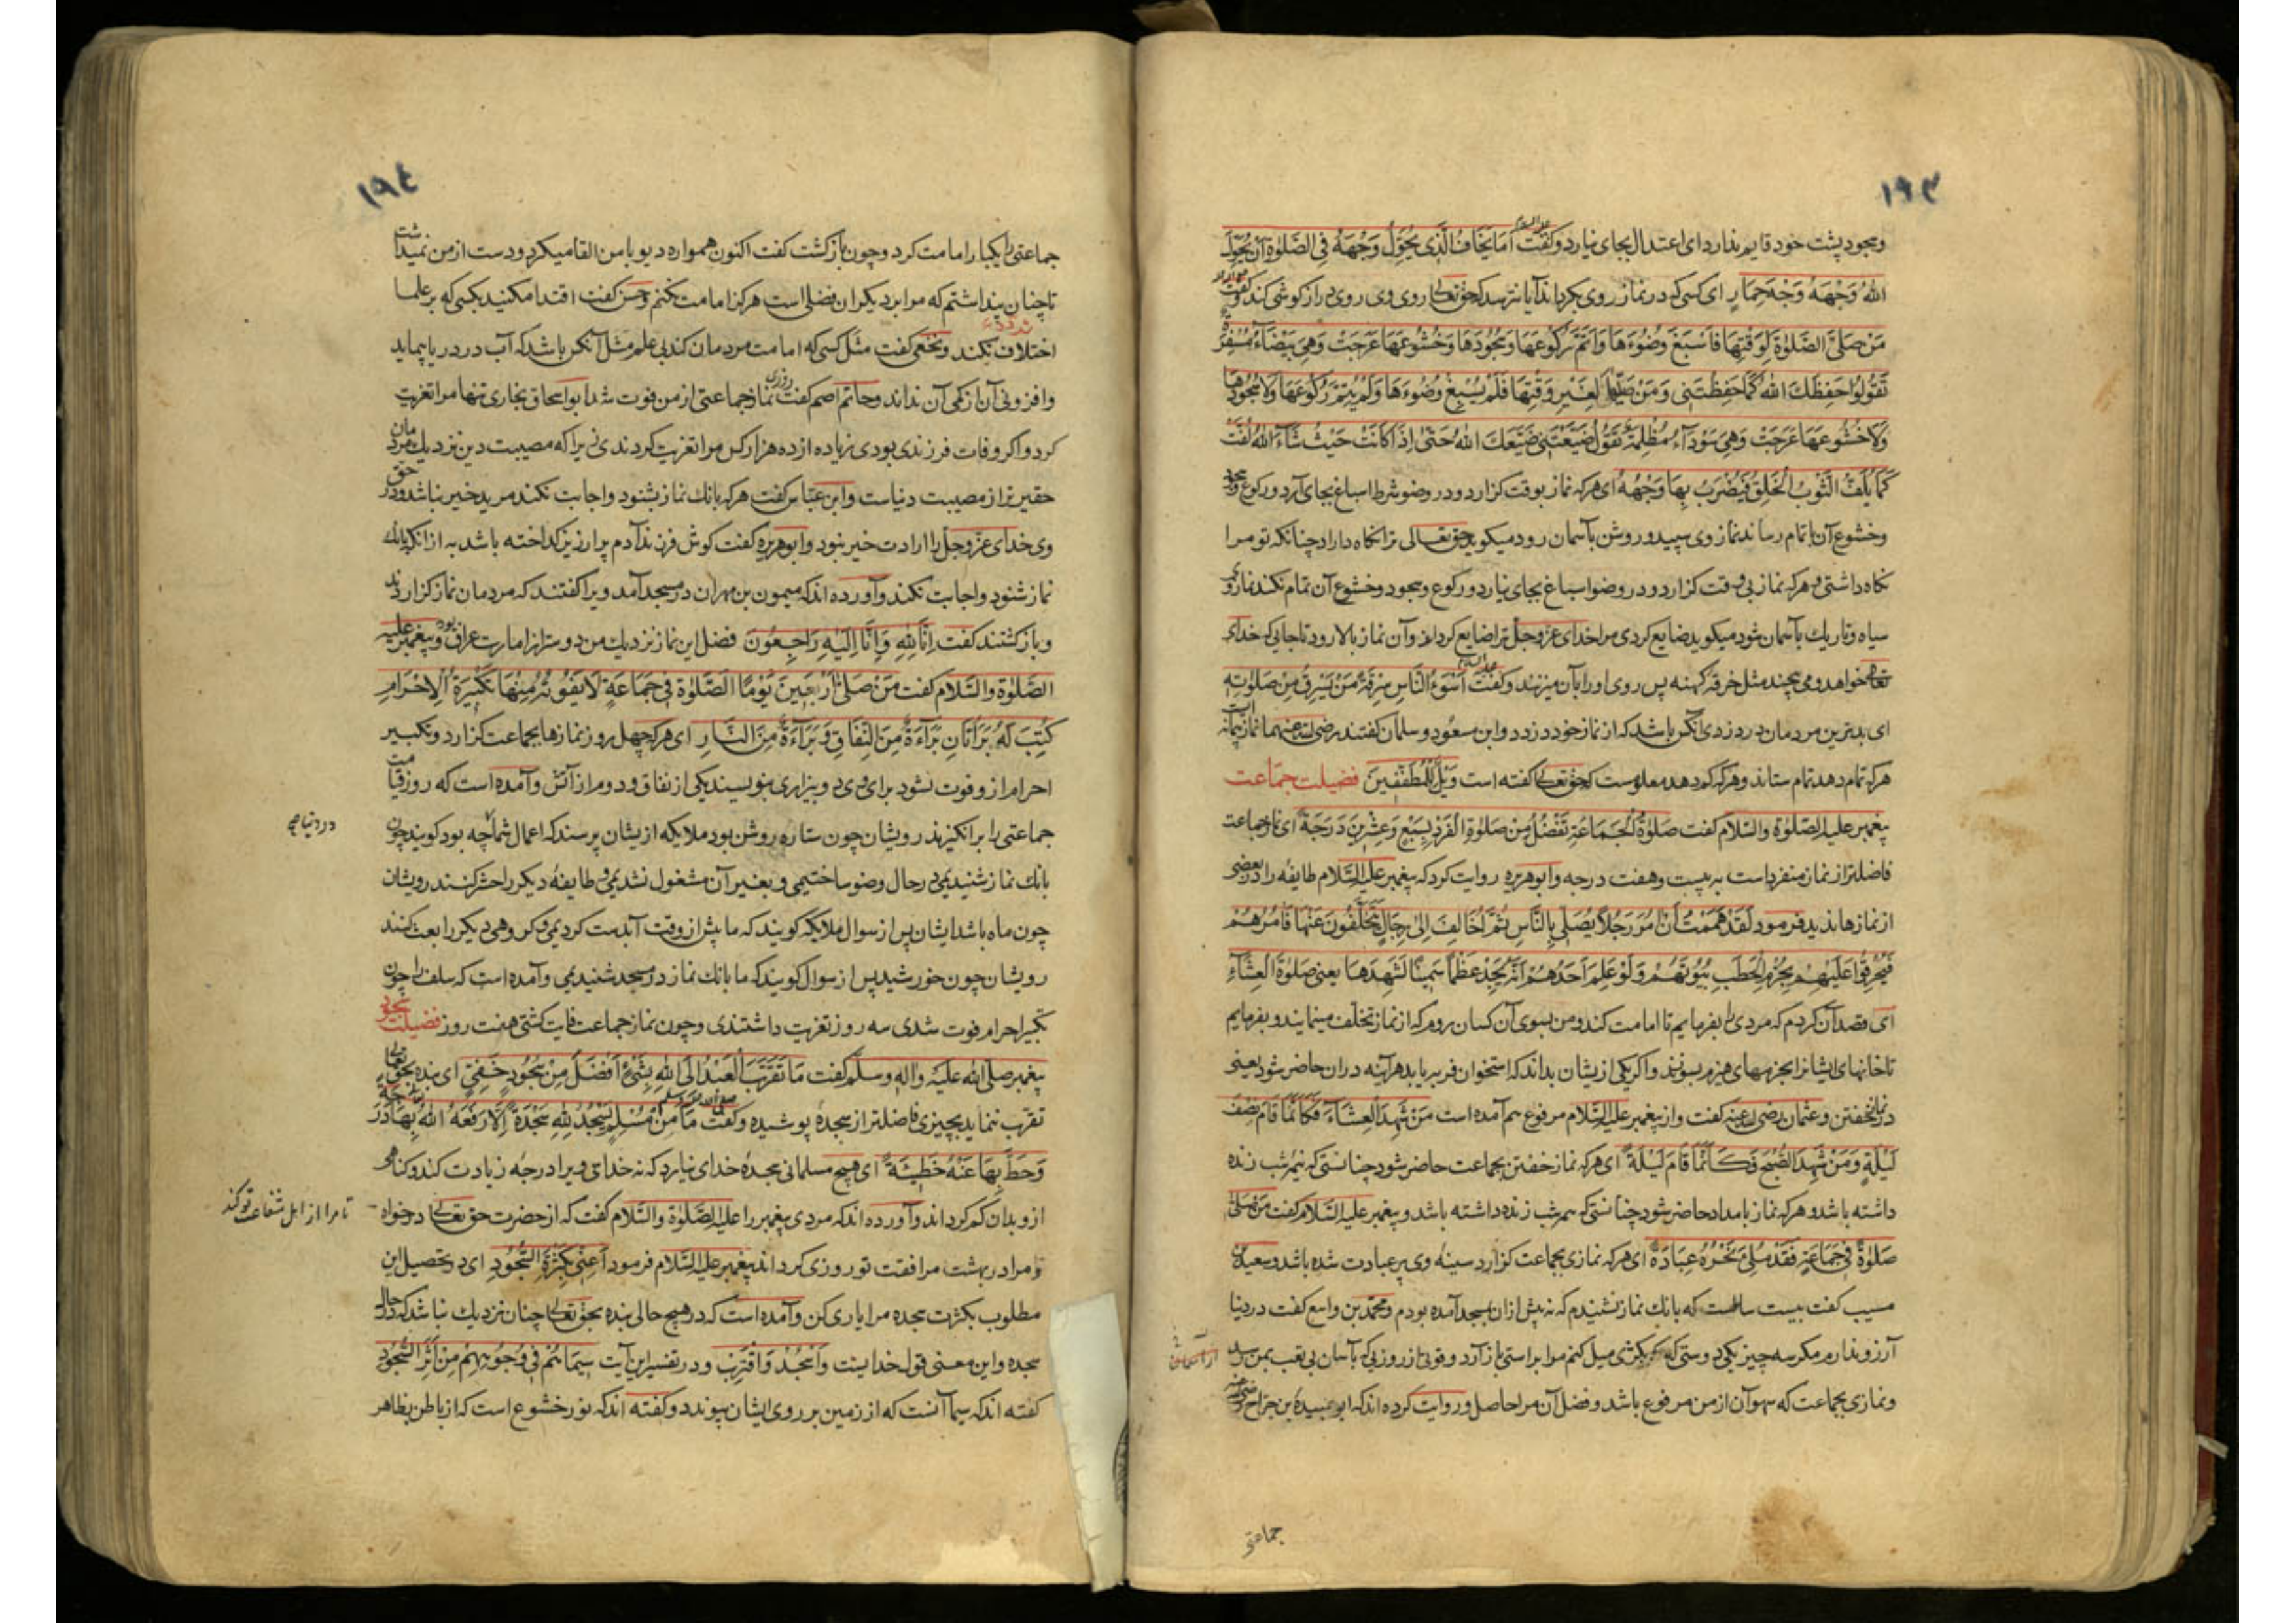 ١٩٣
وسجود پشت خود قایم ندارد ای اعتدال بجای نیارد وکفت علیه السلام اَمَا یَخَافُ الَّذی یُحَوِّلُ وَجْهَهُ فِی الصَّلوٰةِ اَنْ یُحَوِّلَ
اللهُ وَجْهَهُ وَجْهَ حِمَارٍ ای کسی که در نماز روی بکرداند آیا نترسد که حق تعالی روی وی روی درازکوشی کند وکفت علیه السلام
مَنْ صَلَّی الصَّلوٰةَ لِوَقْتِهَا فَاَسْبَغَ وُضُوءَهَا وَاَتَمَّ رُکُوعَهَا وَسُجُودَهَا وَخُشُوعَهَا عَرَجَتْ وَهِیَ بَیْضَآءُ مُسْفِرَةٌ
تَقُولُ حَفِظَکَ اللهُ کَمَا حَفِظْتَنِی وَمَنْ صَلَّیهَا لِغَیْرِ وَقْتِهَا فَلَمْ یُسْبِغْ وُضُوءَهَا وَلَمْ یُتِمَّ رُکُوعَهَا وَلَا سُجُودَهَا
وَلَا خُشُوعَهَا عَرَجَتْ وَهِیَ سَوْدَآءُ مُظْلِمَةٌ تَقُولُ ضَیَّعْتَنِی ضَیَّعَکَ اللهُ حَتّٰی اِذَا کَانَتْ حَیْثُ شَآءَ اللهُ لُفَّتْ
کَمَا یُلَفُّ الثَّوْبُ الْخَلِقُ فَیُضْرَبُ بِهَا وَجْهُهُ ای هرکه نماز بوقت کزارد ودر وضو شرط اسباغ بجای آرد ورکوع وسجود
وخشوع آن باتمام رساند نماز وی سپید وروشن بآسمان رود میکوید حق تعالی ترا نکاه داراد چنانکه تو مرا
نکاه داشتی وهرکه نماز بی وقت کزارد ودر وضو اسباغ بجای نیارد ورکوع وسجود وخشوع آن تمام نکند نماز وی
سیاه وتاریک بآسمان شود میکوید ضایع کردی مرا خدای عزّ وجلّ ترا ضایع کرداند وآن نماز بالا رود تا جایی که خدای
تعالی خواهد ومی پیچند مثل خرقه کهنه پس روی او را بآن میزنند وکفت علیه السلام اَسْوَءُ النَّاسِ سَرِقَةً مَنْ یَسْرِقُ مِنْ صَلٰوتِهِ
ای بدترین مردمان در دزدی آنکس باشد که از نماز خود دزدد وابن مسعود وسلمان کفتند رضی الله عنهما نماز پیمانه ایست
هرکه تمام دهد تمام ستاند وهرکه کم دهد معلومست که حق تعالی کفته است وَیْلٌ لِلْمُطَفِّفِینَ فضیلت جماعت
پیغمبر علیه الصلوة والسلام کفت صَلٰوةُ الْجَمَاعَةِ تَفْضُلُ مِنْ صَلٰوةِ الْفَرْدِ بِسَبْعٍ وَعِشْرِینَ دَرَجَةً ای نماز جماعت
فاضلتر از نماز منفرد است به بیست وهفت درجه وابوهریره روایت کرد که پیغمبر علیه السّلام طایفه را در بعضی
از نمازها ندید فرمود لَقَدْ هَمَمْتُ اَنْ اٰمُرَ رَجُلًا یُصَلِّی بِالنَّاسِ ثُمَّ اُخَالِفَ اِلٰی رِجَالٍ یَتَخَلَّفُونَ عَنْهَا فَاٰمُرَهُمْ
فَیُحَرِّقُوا عَلَیْهِمْ بِحُزَمِ الْحَطَبِ بُیُوتَهُمْ وَلَوْ عَلِمَ اَحَدُهُمْ اَنَّهُ یَجِدُ عَظْمًا سَمِینًا لَشَهِدَهَا یعنی صَلٰوةَ الْعِشَآءِ
ای قصد آن کردم که مردی را بفرمایم تا امامت کند ومن بسوی آن کسان روم که از نماز تخلّف مینمایند وبفرمایم
تا خانهای ایشانرا بحزمهای هیزم بسوزند واکر یکی از یشان بداند که استخوان فربه یابد هرآینه دران حاضر شود یعنی
در نماز خفتن وعثمان رضی الله عنه کفت واز پیغمبر علیه السّلام مرفوع هم آمده است مَنْ شَهِدَ الْعِشَآءَ فَکَاَنَّمَا قَامَ نِصْفَ
لَیْلَةٍ وَمَنْ شَهِدَ الصُّبْحَ فَکَاَنَّمَا قَامَ لَیْلَةً ای هرکه نماز خفتن بجماعت حاضر شود چنانستی که نیم شب زنده
داشته باشد وهرکه نماز بامداد حاضر شود چنانستی که همه شب زنده داشته باشد وپیغمبر علیه السّلام کفت مَنْ صَلّٰی
صَلٰوةً فِی جَمَاعَةٍ فَقَدْ مَلِئَ نَحْرُهُ عِبَادَةً ای هرکه نمازی بجماعت کزارد سینه وی پر عبادت شده باشد وسعید بن
مسیب کفت بیست سالست که بانک نماز نشنیدم که نه پیش ازان بمسجد آمده بودم ومحمّد بن واسع کفت در دنیا
آرزو ندارم مکر سه چیز یکی دوستی که کر بکژی میل کنم مرا براستی باز آرد وقوتی از روزی که بآسان بی تعب بمن رسد
ونمازی بجماعت که سهو آن از من مرفوع باشد وفضل آن مرا حاصل وروایت کرده اند که ابو عبیدهٔ بن جرّاح
جماعتی
١٩٤
جماعتی را یکبار امامت کرد وچون باز کشت کفت اکنون همواره دیو با من القا میکرد ودست از من نمیداشت
تا چنان پنداشتم که مرا بر دیکران فضلی است هرکز امامت نکنم وحسن کفت اقتدا مکنید بکسی که بر علما
اختلاف نکند ونخعی کفت مثل کسی که امامت مردمان کند بی علم مثل آنکس باشد که آب در دریا پیماید
وافزونی آن از کمی آن نداند وحاتم اصم کفت روزی نماز جماعتی از من فوت شد ابو اسحاق بخاری تنها مرا تعزیت
کرد واکر وفات فرزندی بودی زیاده از ده هزار کس مرا تعزیت کردندی زیرا که مصیبت دین نزدیک مردمان
حقیرتر از مصیبت دنیاست وابن عبّاس کفت هرکه بانک نماز بشنود واجابت نکند مرید خیر نباشد ودر حق
وی خدای عزّ وجلّ را ارادت خیر نبود وابوهریره کفت کوش فرزند آدم پر ارزیز کداخته باشد به از انکه بانک
نماز شنود واجابت نکند وآورده اند که میمون بن مهران در مسجد آمد ویرا کفتند که مردمان نماز کزاردند
وباز کشتند کفت اِنَّا لِلّٰهِ وَاِنَّا اِلَیْهِ رَاجِعُونَ فضل این نماز نزدیک من دوستر از امارت عراق بود وپیغمبر علیه
الصّلوة والسّلام کفت مَنْ صَلّٰی اَرْبَعِینَ یَوْمًا الصَّلٰوةَ فِی جَمَاعَةٍ لَا یَفُوتُهُ مِنْهَا تَکْبِیرَةُ الْاِحْرَامِ
کُتِبَ لَهُ بَرَآتَانِ بَرَآءَةٌ مِنَ النِّفَاقِ وَبَرَآءَةٌ مِنَ النَّارِ ای هرکه چهل روز نمازها بجماعت کزارد وتکبیر
احرام ازو فوت نشود برای وی دو بیزاری بنویسند یکی از نفاق ودوم از آتش وآمده است که روز قیامت
جماعتی را برانکیزند رویشان چون ستاره روشن بود ملایکه از یشان پرسند که اعمال شما چه بود کویند چون
در دنیا
بانک نماز شنیدیمی در حال وضو ساختیمی وبغیر آن مشغول نشدیمی وطایفهٔ دیکر را حشر کنند رویشان
چون ماه باشد ایشان پس از سوال ملایکه کویند که ما پیش از وقت آبدست کردیمی وکروهی دیکر را بعث کنند
رویشان چون خورشید پس از سوال کویند که ما بانک نماز در مسجد شنیدیمی وآمده است که سلف را چون
تکبیر احرام فوت شدی سه روز تعزیت داشتندی وچون نماز جماعت فایت کشتی هفت روز فضیلت سجود
پیغمبر صلی الله علیه واله وسلّم کفت مَا تَقَرَّبَ الْعَبْدُ اِلَی اللهِ بِشَیْءٍ اَفْضَلَ مِنْ سُجُودٍ خَفِیٍّ ای بنده بحق تعالی
تقرّب ننماید بچیزی فاضلتر از سجدهٔ پوشیده وکفت صلی الله علیه وسلم مَا مِنْ مُسْلِمٍ یَسْجُدُ لِلّٰهِ سَجْدَةً اِلَّا رَفَعَهُ اللهُ بِهَا دَرَجَةً
وَحَطَّ بِهَا عَنْهُ خَطِیئَةً ای هیچ مسلمانی سجدهٔ خدای نیارد که نه خدای ویرا درجه زیادت کند وکناهی
ازو بدان کم کرداند وآورده اند که مردی پیغمبر را علیه الصّلوة والسّلام کفت که از حضرت حق تعالی درخواه
تا مرا از اهل شفاعت تو کند
ومرا در بهشت مرافقت تو روزی کرداند پیغمبر علیه السّلام فرمود اَعِنِّی بِکَثْرَةِ السُّجُودِ ای در تحصیل این
مطلوب بکثرت سجده مرا یاری کن وآمده است که در هیچ حالی بنده بحق تعالی چنان نزدیک نباشد که در حال
سجده واین معنی قول خداینست وَاسْجُدْ وَاقْتَرِبْ ودر تفسیر این آیت سِیمَاهُمْ فِی وُجُوهِهِمْ مِنْ اَثَرِ السُّجُودِ
کفته اند که سیما آنست که از زمین بر روی ایشان پیوندد وکفته اند که نور خشوع است که از باطن بظاهر